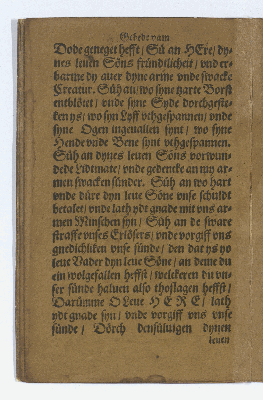 Gebedt vam
Dode geneget hefft / Sü an HEre / dy-
nes leuen Söns fründtlicheit / vnd er-
barme dy auer dyne arme vnde swacke
Creatur. Süh an / wo syne tzarte Borst
entblötet / vnde syne Syde dorchgeste-
ken ys / wo syn Lyff vthgespannen / vnde
syne Ogen ingeuallen synt / wo syne
Hende vnde Bene synt vthgespannen.
Süh an dynes leuen Söns vorwun-
dede Lidtmate / vnde gedencke an my ar-
men swacken sünder. Süh an wo hart
vnde düre dyn leue Söne vnse schuldt
betalet / vnde lath ydt gnade mit vns ar-
men Minschen syn / Süh an de sware
straffe vnses Erlösers / vnde vorgiff vns
gnedichliken vnse sünde / den dat ys yo
leue Vader dyn leue Söne / an deme du
ein wolgefallen heffst / welckeren du vn-
ser sünde haluen also thoslagen heffst /
Darümme O Leue HERE / lath
ydt gnade syn / vnde vorgiff vns vnse
sünde / Dörch densüluigen dynen
leuen